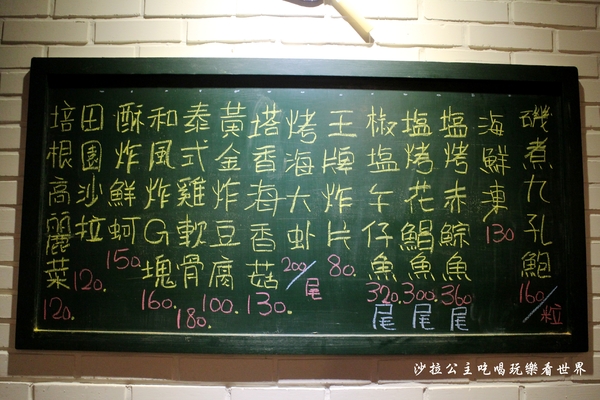 磯煮九孔鮑 160/粒
海鮮凍 130
塩烤赤鯮魚 360/尾
塩烤花鯧魚 300/尾
椒塩午仔魚 320/尾
王牌炸片 80.
烤海大虾 200/尾
塔香海香菇 130.
黃金炸豆腐 100.
泰式雞軟骨 180.
和風炸G塊 160.
酥炸鮮蚵 150.
田園沙拉 120.
培根高麗菜 120.
沙拉公主吃喝玩樂看世界